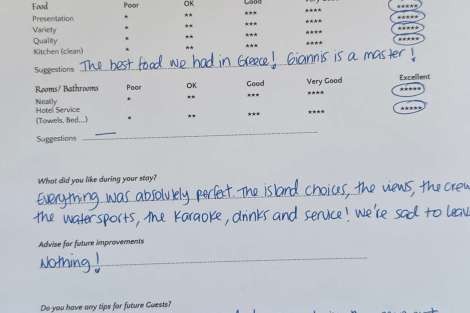 Food Poor OK Good
Presentation * ** *** **** *****
Variety * ** *** **** *****
Quality * ** *** **** *****
Kitchen (clean) * ** *** **** *****
Suggestions The best food we had in Greece! Giannis is a master!
Rooms/ Bathrooms Poor OK Good Very Good Excellent
Neatly * ** *** **** *****
Hotel Service
(Towels, Bed...) * ** *** **** *****
Suggestions
What did you like during your stay?
Everything was absolutely perfect. The island choices, the views, the crew
the watersports, the karaoke, drinks and service! We're sad to leav
Advise for future improvements
Nothing!
Do you have any tips for future Guests?